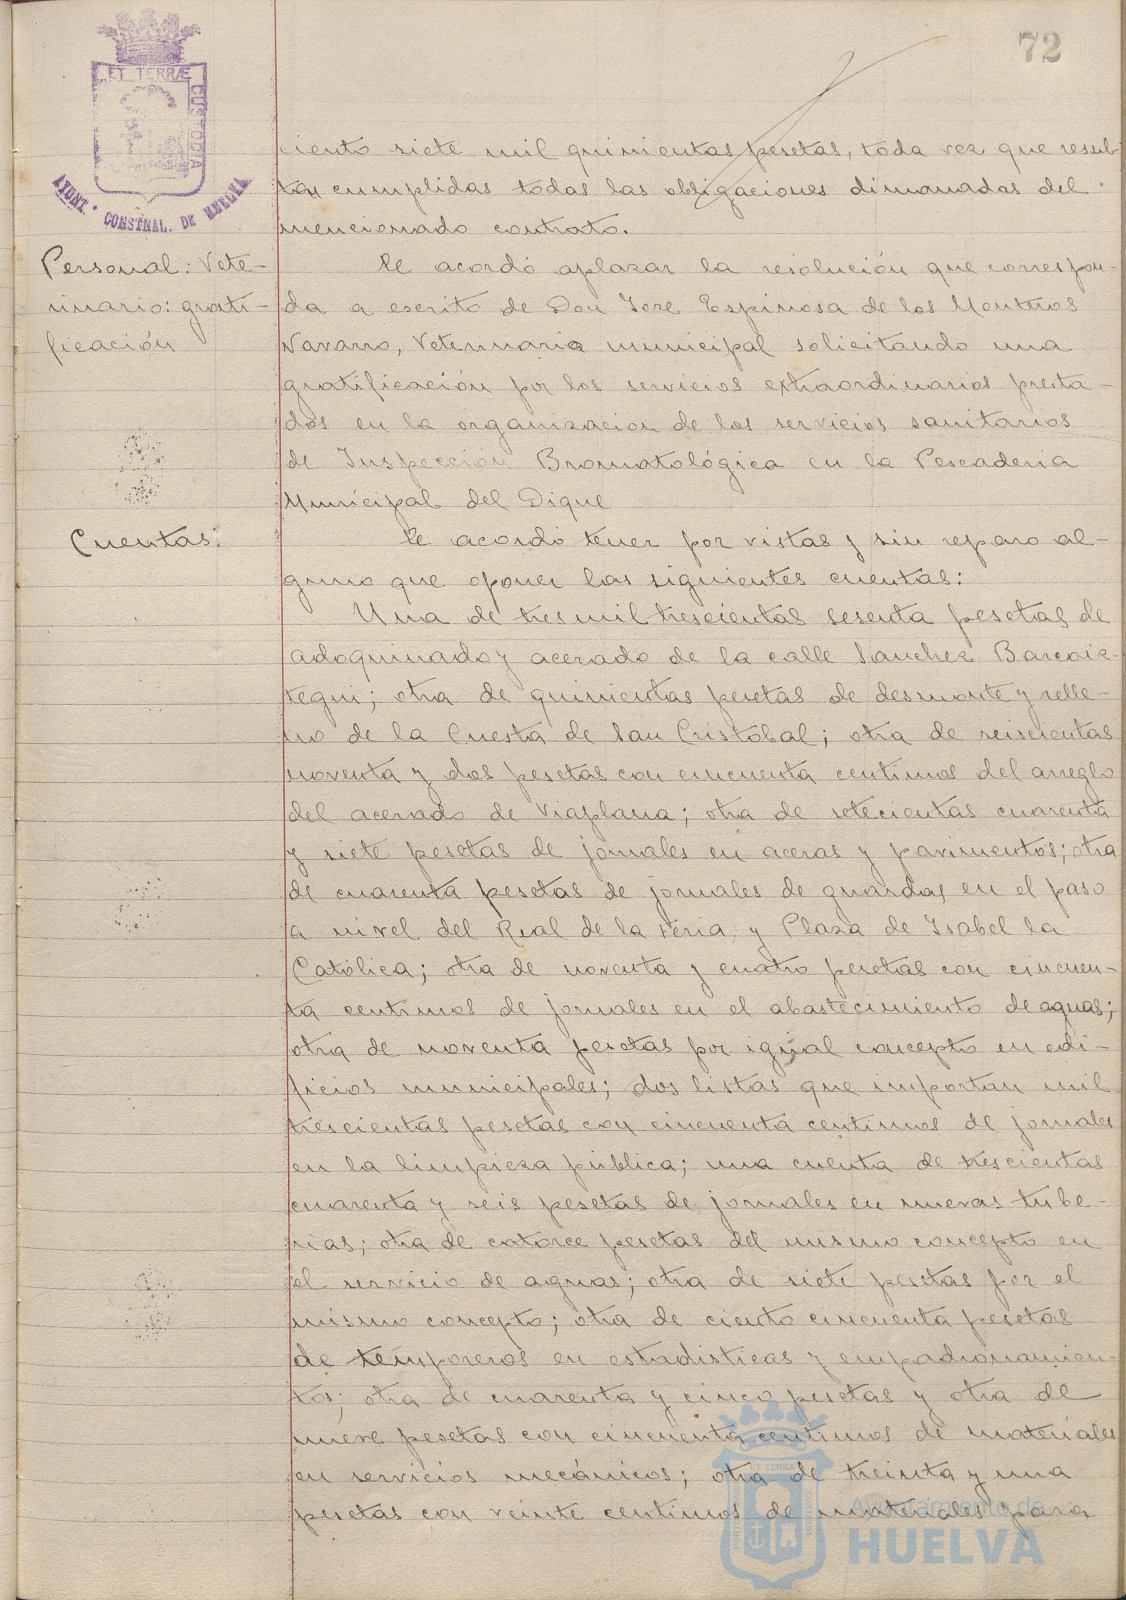 72
ET TERRÆ CUSTODIA
AYUNT. CONSTNAL. DE HUELVA
ciento siete mil quinientas pesetas, toda vez que resul
tan cumplidas todas las obligaciones dimanadas del
mencionado contrato.
Personal: Vete-
rinario: grati-
ficación
Se acordó aplazar la resolución que correspon-
da a escrito de Don Jose Espinosa de los Monteros
Navarro, Veterinario municipal solicitando una
gratificación por los servicios extraordinarios presta-
dos en la organizacion de los servicios sanitarios
de Inspección Bromatológica en la Pescaderia
Municipal del Dique
Cuentas:
Se acordó tener por vistas y sin reparo al-
guno que oponer las siguientes cuentas:
Una de tres mil trescientas sesenta pesetas de
adoquinado y acerado de la calle Sanchez Barcaiz-
tegui; otra de quinientas pesetas de desmonte y relle-
no de la Cuesta de San Cristobal; otra de seiscientas
noventa y dos pesetas con cincuenta centimos del arreglo
del acerado de Viaplana; otra de setecientas cuarenta
y siete pesetas de jornales en aceras y pavimentos; otra
de cuarenta pesetas de jornales de guardas en el paso
a nivel del Real de la Feria y Plaza de Isabel la
Católica; otra de noventa y cuatro pesetas con cincuen-
ta centimos de jornales en el abastecimiento de aguas;
otra de noventa pesetas por igual concepto en edi-
ficios municipales; dos listas que importan mil
trescientas pesetas con cincuenta centimos de jornales
en la limpieza pública; una cuenta de trescientas
cuarenta y seis pesetas de jornales en nuevas tube-
rias; otra de catorce pesetas del mismo concepto en
el servicio de aguas; otra de siete pesetas por el
mismo concepto; otra de ciento cincuenta pesetas
de temporeros en estadisticas y empadronamien-
tos; otra de cuarenta y cinco pesetas y otra de
nueve pesetas con cincuenta centimos de materiales
en servicios mecánicos; otra de treinta y una
pesetas con veinte centimos de materiales para
Ayuntamiento de
HUELVA